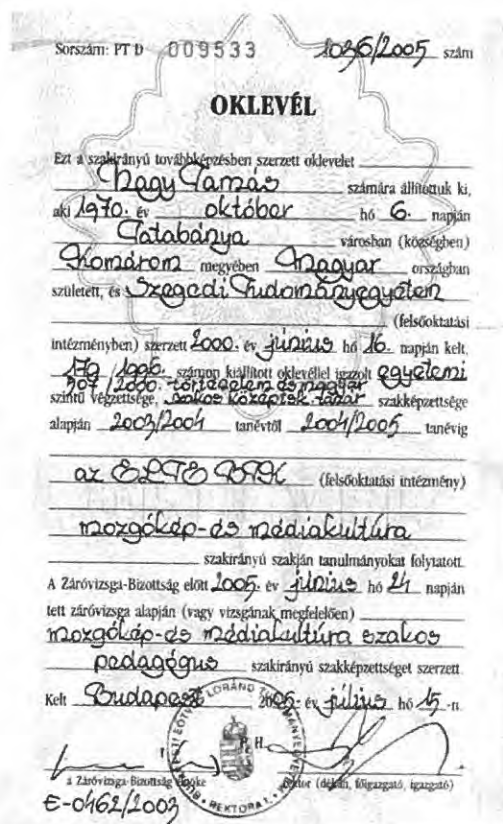 Sorszám: PT D 009533 1036/2005 szám
OKLEVÉL
Ezt a szakirányú továbbképzésben szerzett oklevelet
Nagy Tamás számára állítottuk ki,
aki 1970. év október hó 6. napján
Tatabánya városban (községben)
Komárom megyében Magyar országban
született, és Szegedi Tudományegyetem
(felsőoktatási
intézményben) szerzett 2000. év június hó 16. napján kelt,
179/1996. számon kiállított oklevéllel igazolt egyetemi
907/2000. történelem és magyar
szintű végzettsége, szakos középisk. tanár szakképzettsége
alapján 2003/2004 tanévtől 2004/2005 tanévig
az ELTE BTK (felsőoktatási intézmény)
mozgókép- és médiakultúra
szakirányú szakján tanulmányokat folytatott.
A Záróvizsga-Bizottság előtt 2005. év június hó 21. napján
tett záróvizsga alapján (vagy vizsgának megfelelően)
mozgókép- és médiakultúra szakos
pedagógus szakirányú szakképzettséget szerzett.
Kelt Budapest 2005. év július hó 15-n.
P. H.
a Záróvizsga-Bizottság elnöke rektor (dékán, főigazgató, igazgató)
E-0462/2003
BUDAPESTI EÖTVÖS LORÁND TUDOMÁNYEGYETEM
REKTORA 1.